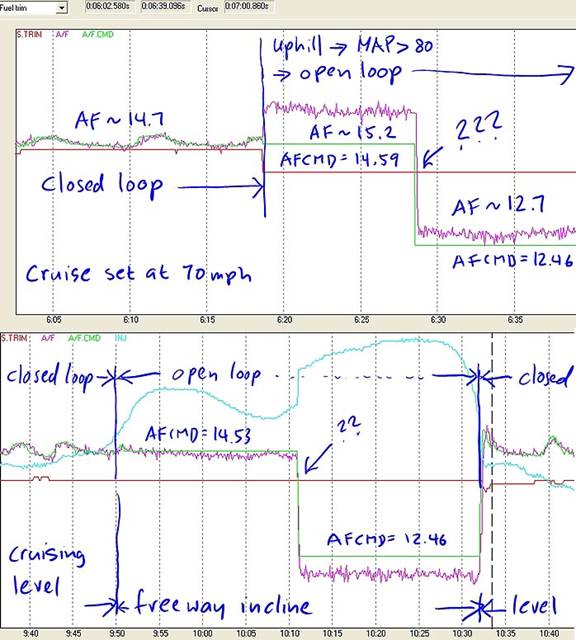 Fuel bin 0:06:02.580s 0:06:39.096s Cursor 0:07:00.860s
S.TRIM A/F A/F.CMD
uphill → MAP > 80
→ open loop
AF ~ 14.7
AF ~ 15.2
???
AFCMD = 14.59
Closed loop
AF ~ 12.7
Cruise set at 70 mph
AFCMD = 12.46
6:05 6:10 6:15 6:20 6:25 6:30 6:35
S.TRIM A/F A/F.CMD INJ
closed loop open loop closed
AFCMD = 14.53
??
AFCMD = 12.46
Cruising
level
freeway incline
level
9:40 9:45 9:50 9:55 10:00 10:05 10:10 10:15 10:20 10:25 10:30 10:35 10:40